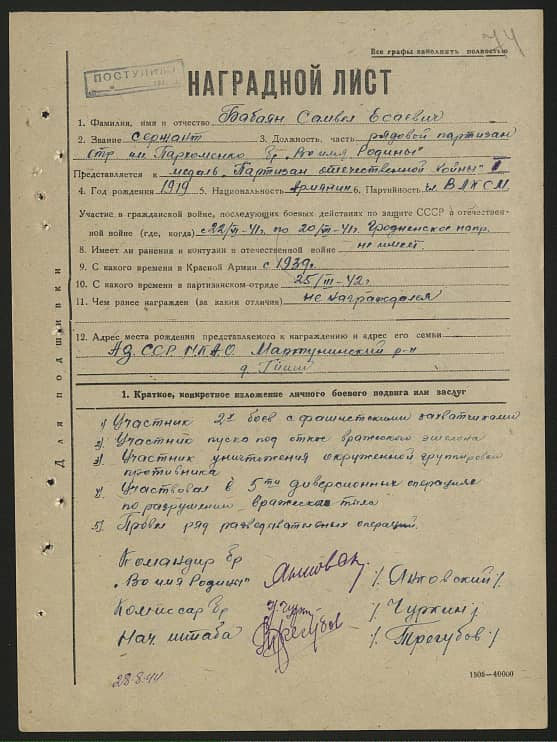 74
Все графы заполнять полностью
ПОСТУПИЛО
НАГРАДНОЙ ЛИСТ
1. Фамилия, имя и отчество Бабаян Самвел Есаевич
2. Звание сержант 3. Должность, часть рядовой партизан
отр. им. Пархоменко бр. "Во имя Родины"
Представляется к медаль "Партизан отечественной войны" II
4. Год рождения 1919 5. Национальность армянин 6. Партийность чл. ВЛКСМ
Участие в гражданской войне, последующих боевых действиях по защите СССР и отечественной
ной войне (где, когда) с 22/VI-41г. по 20/VII-41г. Гродненское напр.
8. Имеет ли ранения и контузии в отечественной войне не имеет
9. С какого времени в Красной Армии с 1939г.
10. С какого времени в партизанском отряде 25/III-42г.
11. Чем ранее награжден (за какие отличия) не награждался
12. Адрес места рождения представляемого к награждению и адрес его семьи
Аз. ССР Н.К.А.О. Мартунинский р-н
д. Гиши
Для подшивки
1. Краткое, конкретное изложение личного боевого подвига или заслуг
1) Участник 2х боев с фашистскими захватчиками
2) Участник пуска под откос вражеского эшелона
3) Участник уничтожения окруженной группировки
противника
4) Участвовал в 5ти диверсионных операциях
по разрушению вражеского тыла
5) Провел ряд разведывательных операций.
Командир бр.
"Во имя Родины" /Янковский/
Комиссар бр. /Чуркин/
Нач. штаба Трегубов /Трегубов/
28.8.44
1508—40000